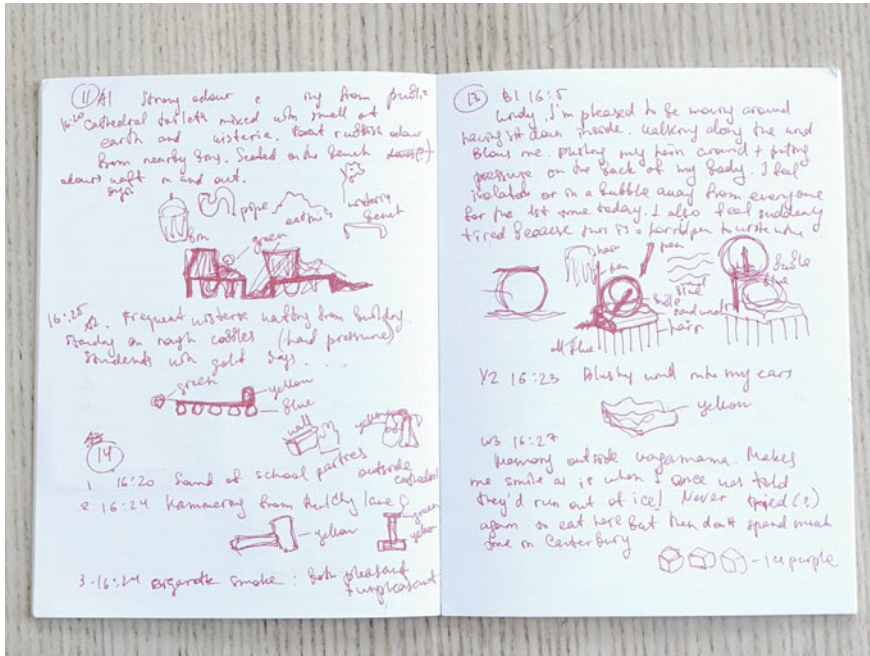 11 A1 Strong odour from public
16:20 Cathedral toilets mixed with smell of
earth and wisteria. Faint rubbish odour
from nearby bin. Seated on the bench
odours waft in and out.
pipe
earth
wisteria
bench
bin
green
16:25 A2. Frequent wisteria wafting from building
standing on rough cobbles (hard pressure)
Students with gold bags. . . .
green
yellow
blue
wall
yellow
14
1 16:20 Sound of school parties outside
cathedral
2 16:24 Hammering from lane
yellow
green
yellow
3 - 16:24 cigarette smoke : Both pleasant
+ unpleasant
13 B1 16:15
Windy. I'm pleased to be moving around
having sat down inside. Walking along the wind
blows me. Pushing my hair around + putting
pressure on the back of my body. I feel
isolated or in a bubble away from everyone
for the 1st time today. I also feel suddenly
tired because this is a horrid pen to write with
hair
pen
pen
wind
blue
bubble
blue
hair
all blue
Y2 16:23 Blustery wind into my ears
yellow
W3 16:27
Memory outside wagamama. Makes
me smile as is when I once was told
they'd run out of ice! Never (?)
again to eat here but then don't spend much
time in Canterbury
- ice purple